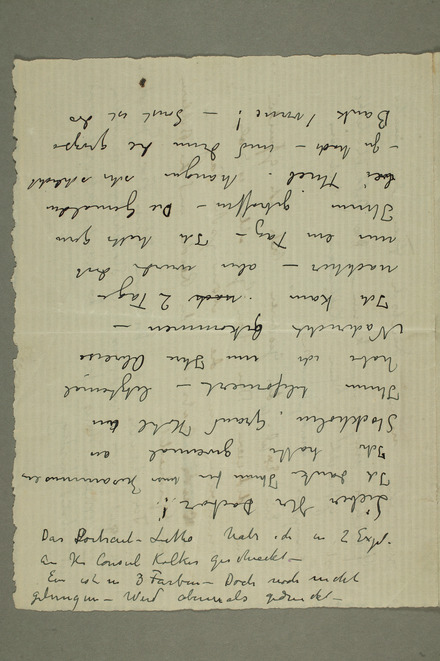 Lieber Hr Doctor!
Ich danke Ihnen für
Ich hatte zweimal an
Stockholm, Grand Hotel an
Ihnen telefoniert –
habe ich nur Ihre Adresse
Nachricht bekommen –
Ich kam nach 2 Tage
nachher – aber wurde dort
nur ein Tag – Ich hätte gern
Ihnen getroffen – Die Gemälde
bei Thiel hangen sehr schlecht
– zu hoch – und dann die grosse
Bank vorne! – Sonst ist das
Das Portrait-Litho habe ich in 2 Expl.
an Hr Consul Kolker geschickt –
Ein ist in 3 Farben – Doch noch nicht
gelungen – Wird abermals gedruckt –